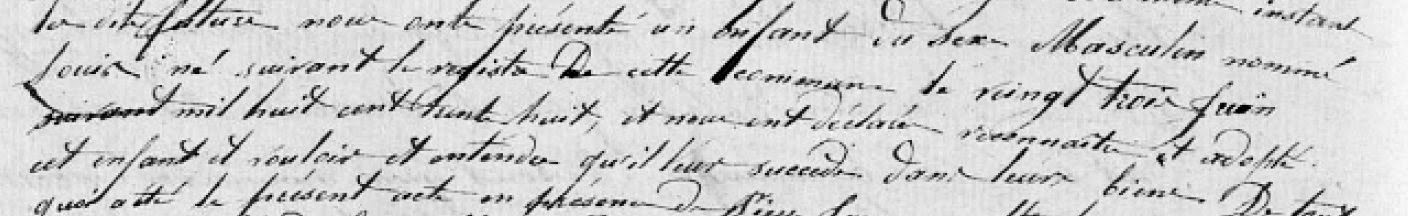 instant
la dite future nous ont présenté un enfant du sexe Masculin nommé
Louis né suivant le registre de cette commune le vingt trois Juin
mil huit cent trente huit, et nous ont déclaré reconnaitre et adopté
cet enfant et vouloir et entendre qu'il leur succede dans leurs biens De tout
quoi a été le présent acte en présence de